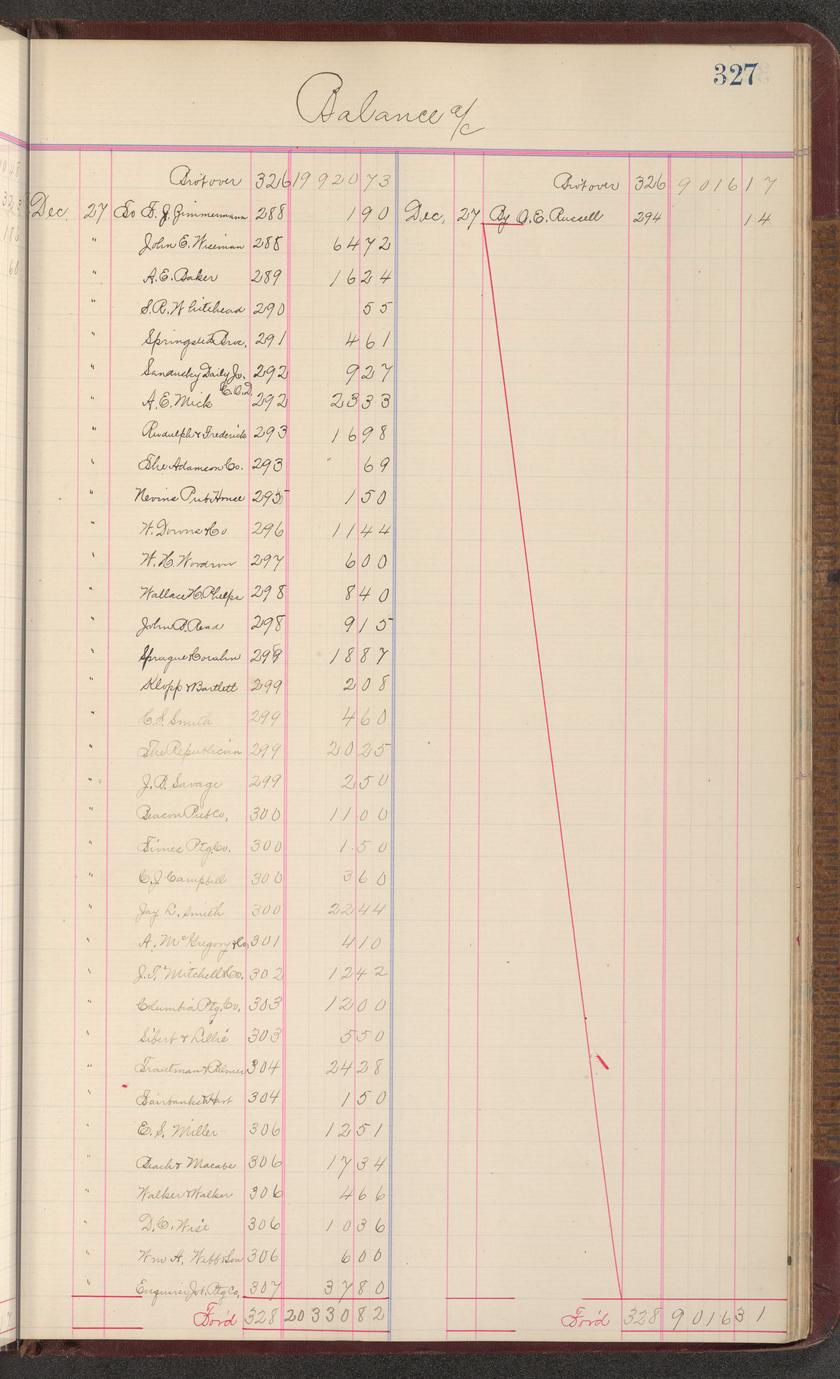 327
Balance a/c
Bro't over 326 19 920 73 Bro't over 326 9 016 17
Dec. 27 To F. J. Zimmermann 288 1 90 Dec. 27 By O. E. Russell 294 14
" John E. Wiseman 288 64 72
" A. E. Baker 289 16 24
" S. R. Whitehead 290 55
" Springsted Bros. 291 4 61
" Sandusky Daily Jo. 292 9 27
" A. E. Mick C.O.D. 292 23 33
" Rudulph & Frederick 293 16 98
" The Adamson Co. 293 69
" Nevins Pub. House 295 1 50
" W. Downs & Co 296 11 44
" W. H. Woodrow 297 6 00
" Wallace H. Phelps 298 8 40
" John B. Read 298 9 15
" Sprague 299 18 87
" Klopp & Bartlett 299 2 08
" C. S. Smith 299 4 60
" The Republican 299 20 25
" J. B. Savage 299 2 50
" Beacon Pub Co, 300 11 00
" Times Ptg. Co. 300 1 50
" C. J. Campbell 300 3 60
" Jay L. Smith 300 22 44
" A. McGregory & Co, 301 4 10
" J. T. Mitchell & Co. 302 12 42
" Columbia Ptg. Co, 303 12 00
" Sibert & Lillie 303 5 50
" Trautman & Palmer 304 24 28
" Fairbanks & Hart 304 1 50
" E. S. Miller 306 12 51
" Beach & Macabe 306 17 34
" Walker & Walker 306 4 66
" D. C. Wise 306 10 36
" Wm H. Webb & Son 306 6 00
" Enquirer Job Ptg Co, 307 37 80
For'd 328 20 330 82 For'd 328 9 016 31